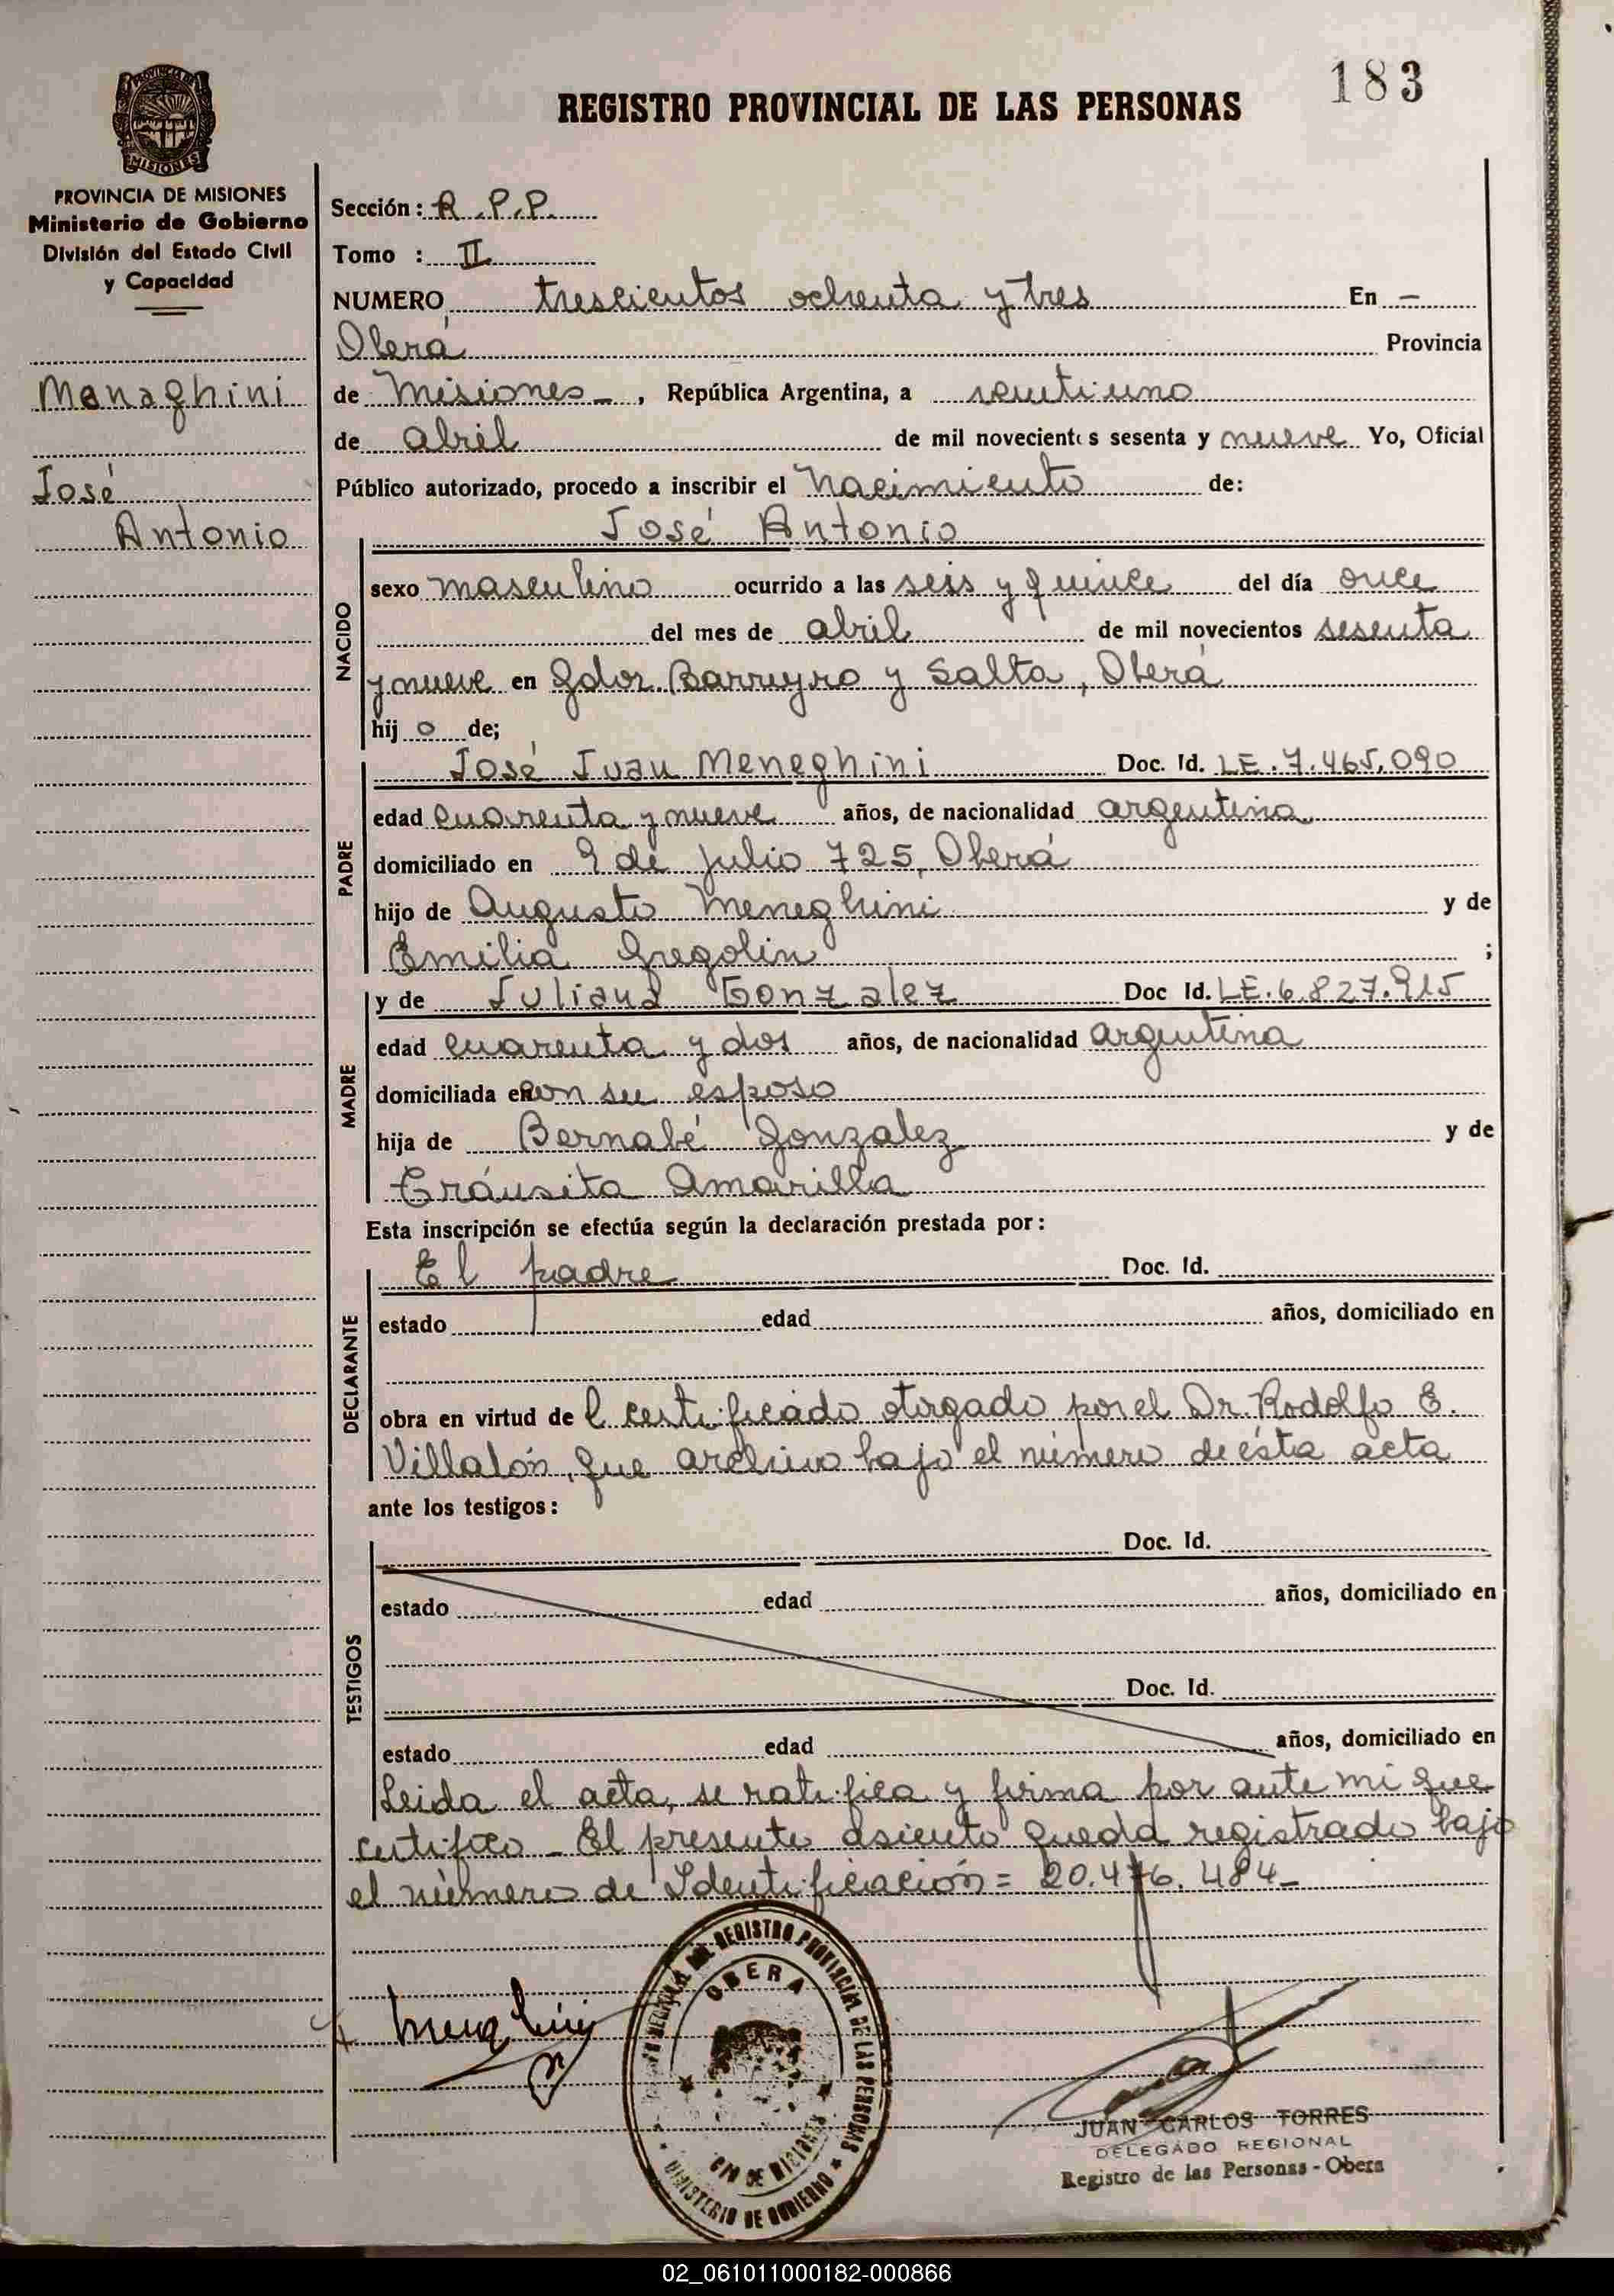 183
REGISTRO PROVINCIAL DE LAS PERSONAS
PROVINCIA DE MISIONES
Ministerio de Gobierno
División del Estado Civil
y Capacidad
Menaghini
José
Antonio
Sección: R.P.P.
Tomo : II
NUMERO trescientos ochenta y tres En –
Oberá Provincia
de Misiones – , República Argentina, a veintiuno
de abril de mil novecientos sesenta y nueve Yo, Oficial
Público autorizado, procedo a inscribir el Nacimiento de:
José Antonio
NACIDO
sexo masculino ocurrido a las seis y quince del día once
del mes de abril de mil novecientos sesenta
y nueve en Gdor. Barreyro y Salta, Oberá
hij o de;
PADRE
José Juan Meneghini Doc. Id. LE. 7.465.090
edad cuarenta y nueve años, de nacionalidad argentina
domiciliado en 9 de julio 725, Oberá
hijo de Augusto Meneghini y de
Emilia Gregolin ;
MADRE
y de Juliana Gonzalez Doc Id. LE. 6.827.915
edad cuarenta y dos años, de nacionalidad argentina
domiciliada en con su esposo
hija de Bernabé Gonzalez y de
Tránsita Amarilla
Esta inscripción se efectúa según la declaración prestada por:
DECLARANTE
El padre Doc. Id.
estado edad años, domiciliado en
obra en virtud de l certificado otorgado por el Dr. Rodolfo E.
Villalón, que archivo bajo el número de ésta acta
ante los testigos:
TESTIGOS
Doc. Id.
estado edad años, domiciliado en
Doc. Id.
estado edad años, domiciliado en
Leida el acta, se ratifica y firma por ante mi que
certifico – El presente asiento queda registrado bajo
el número de Identificación = 20.476.484 –
OBERA
MINISTERIO DE GOBIERNO
JUAN CARLOS TORRES
DELEGADO REGIONAL
Registro de las Personas - Obera
02_061011000182-000866